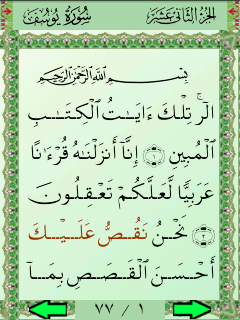 سُورَةُ يُوسُفَ الجزء الثاني عشر
بِسْمِ اللَّهِ الرَّحْمَٰنِ الرَّحِيمِ
الٓرۚ تِلْكَ ءَايَـٰتُ ٱلْكِتَـٰبِ
ٱلْمُبِينِ ١ إِنَّآ أَنزَلْنَـٰهُ قُرْءَٰنًا
عَرَبِيًّا لَّعَلَّكُمْ تَعْقِلُونَ
٢ نَحْنُ نَقُصُّ عَلَيْكَ
أَحْسَنَ ٱلْقَصَصِ بِمَآ
٧٧ / ١